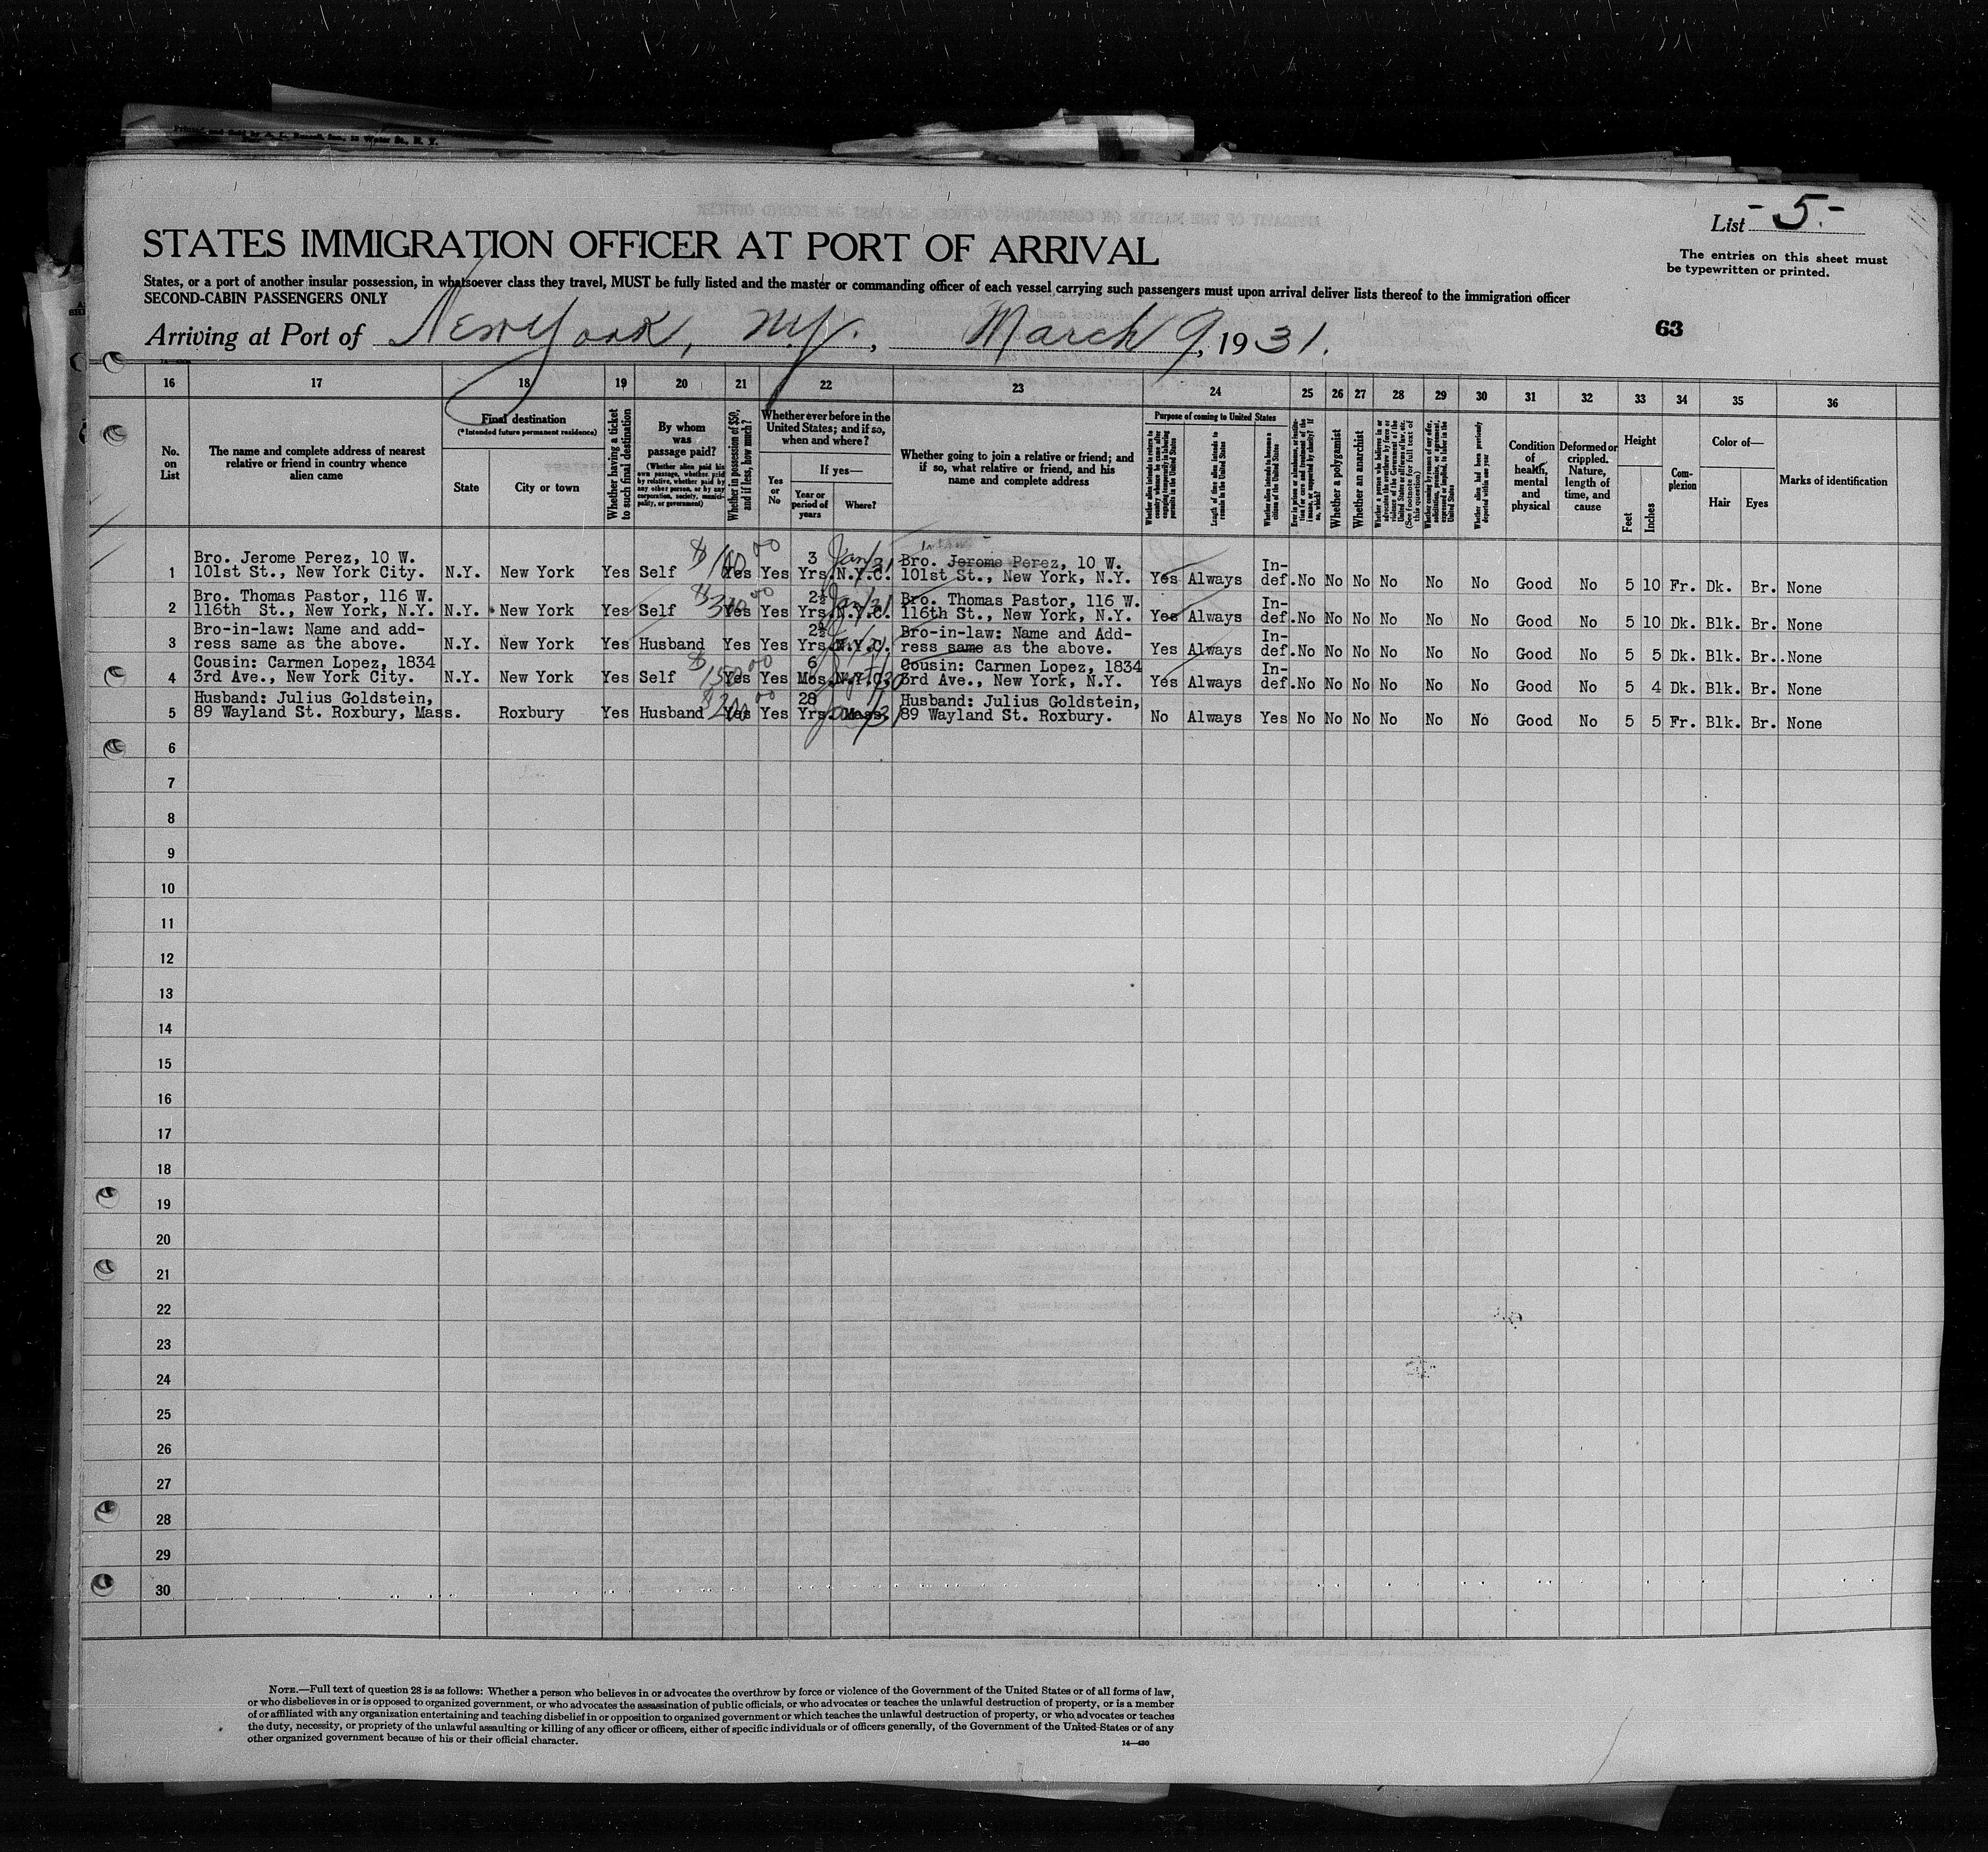 List - 5 -
STATES IMMIGRATION OFFICER AT PORT OF ARRIVAL
The entries on this sheet must
be typewritten or printed.
States, or a port of another insular possession, in whatsoever class they travel, MUST be fully listed and the master or commanding officer of each vessel carrying such passengers must upon arrival deliver lists thereof to the immigration officer
SECOND-CABIN PASSENGERS ONLY
Arriving at Port of New York, N.Y., March 9, 1931.
63
16 17 18 19 20 21 22 23 24 25 26 27 28 29 30 31 32 33 34 35 36
No. on List
The name and complete address of nearest relative or friend in country whence alien came
Final destination
(*Intended future permanent residence)
State
City or town
Whether having a ticket to such final destination
By whom was passage paid?
(Whether alien paid his own passage, whether paid by relative, whether paid by any other person, or by any corporation, society, municipality, or government)
Whether in possession of $50, and if less, how much?
Whether ever before in the United States; and if so, when and where?
Yes or No
If yes—
Year or period of years
Where?
Whether going to join a relative or friend; and if so, what relative or friend, and his name and complete address
Purpose of coming to United States
Length of time alien intends to remain in the United States
Whether alien intends to become a citizen of the United States
Whether a polygamist
Whether an anarchist
Whether alien had been previously deported within one year
Condition of health, mental and physical
Deformed or crippled. Nature, length of time, and cause
Height
Feet
Inches
Complexion
Color of—
Hair
Eyes
Marks of identification
1 Bro. Jerome Perez, 10 W. 101st St., New York City. N.Y. New York Yes Self $100.00 Yes Yes 3 Yrs. N.Y.C. Jan/31 Bro. Jerome Perez, 10 W. 101st St., New York, N.Y. Yes Always Indef. No No No No No No Good No 5 10 Fr. Dk. Br. None
2 Bro. Thomas Pastor, 116 W. 116th St., New York, N.Y. N.Y. New York Yes Self $300.00 Yes Yes 2½ Yrs. N.Y.C. Jan/31 Bro. Thomas Pastor, 116 W. 116th St., New York, N.Y. Yes Always Indef. No No No No No No Good No 5 10 Dk. Blk. Br. None
3 Bro-in-law: Name and address same as the above. N.Y. New York Yes Husband Yes Yes 2½ Yrs. N.Y.C. Bro-in-law: Name and Address same as the above. Yes Always Indef. No No No No No No Good No 5 5 Dk. Blk. Br. None
4 Cousin: Carmen Lopez, 1834 3rd Ave., New York City. N.Y. New York Yes Self $150.00 Yes Yes 6 Mos. N.Y.C. Cousin: Carmen Lopez, 1834 3rd Ave., New York, N.Y. Yes Always Indef. No No No No No No Good No 5 4 Dk. Blk. Br. None
5 Husband: Julius Goldstein, 89 Wayland St. Roxbury, Mass. Roxbury Yes Husband $200.00 Yes Yes 28 Yrs. Mass. Husband: Julius Goldstein, 89 Wayland St. Roxbury. No Always Yes No No No No No No Good No 5 5 Fr. Blk. Br. None
6
7
8
9
10
11
12
13
14
15
16
17
18
19
20
21
22
23
24
25
26
27
28
29
30
NOTE.—Full text of question 28 is as follows: Whether a person who believes in or advocates the overthrow by force or violence of the Government of the United States or of all forms of law,
or who disbelieves in or is opposed to organized government, or who advocates the assassination of public officials, or who advocates or teaches the unlawful destruction of property, or is a member
of or affiliated with any organization entertaining and teaching disbelief in or opposition to organized government or which teaches the unlawful destruction of property, or who advocates or teaches
the duty, necessity, or propriety of the unlawful assaulting or killing of any officer or officers, either of specific individuals or of officers generally, of the Government of the United States or of any
other organized government because of his or their official character.
14—430